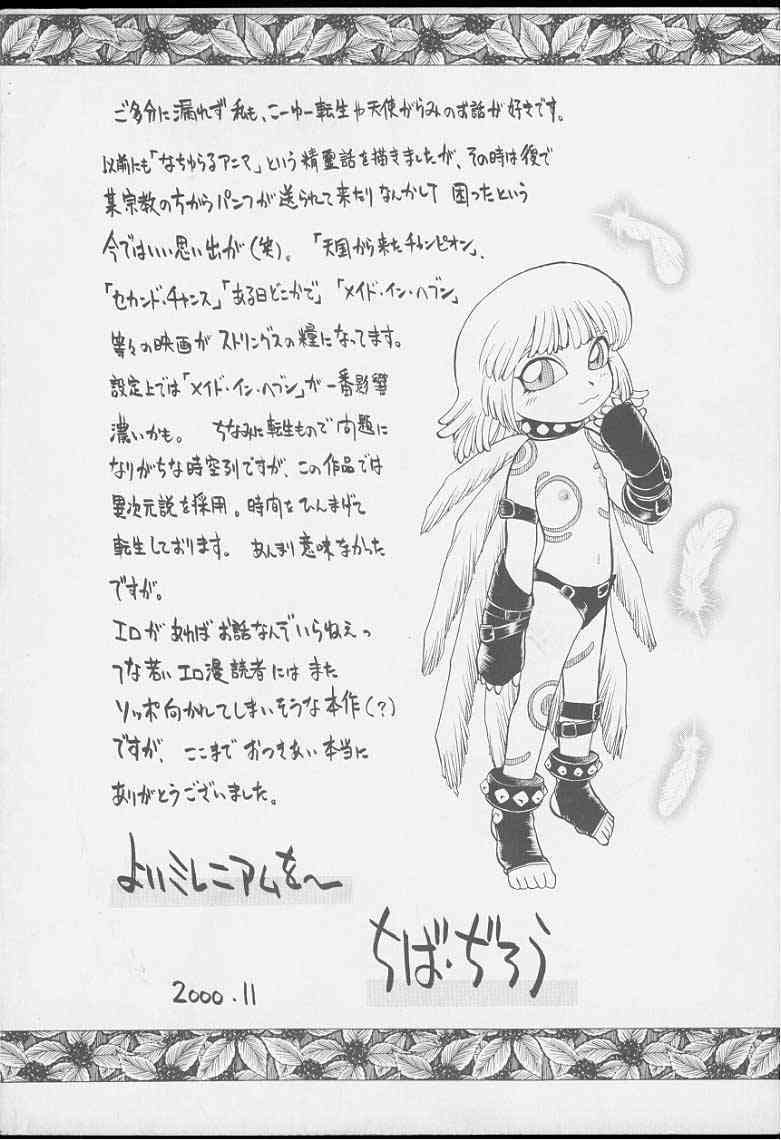 ご多分に漏れず私も、こーゆー転生や天使がらみのお話が好きです。
以前にも「なちゅらるアニマ」という精霊話を描きましたが、その時は後で
某宗教の方からパンフが送られて来たりなんかして 困ったという
今ではいい思い出が(笑)。「天国から来たチャンピオン」、
「セカンド・チャンス」「ある日どこかで」「メイド・イン・ヘブン」
等々の映画がストリングスの糧になってます。
設定上では「メイド・イン・ヘブン」が一番影響
濃いかも。 ちなみに転生もので問題に
なりがちな時空列ですが、この作品では
異次元説を採用。時間をひんまげて
転生しております。 あんまり意味なかった
ですが。
エロがあればお話なんていらねぇっ
つな若いエロ漫読者にはまた
ソッポ向かしてしまいそうな本作(?)
ですが、ここまでおつきあい本当に
ありがとうございました。
よいミレニアムを〜
ちば・ぢろう
2000.11